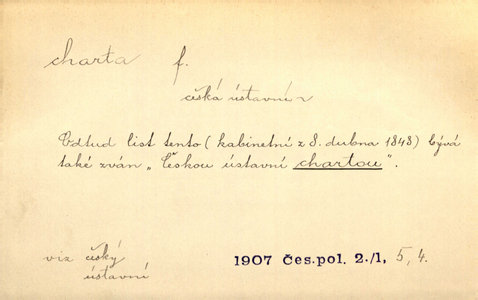 charta f.
česká ústavní ~
Odtud list tento (kabinetní z 8. dubna 1848) bývá
také zván „Českou ústavní chartou".
viz český
ústavní
1907 Čes.pol. 2./1, 5, 4.